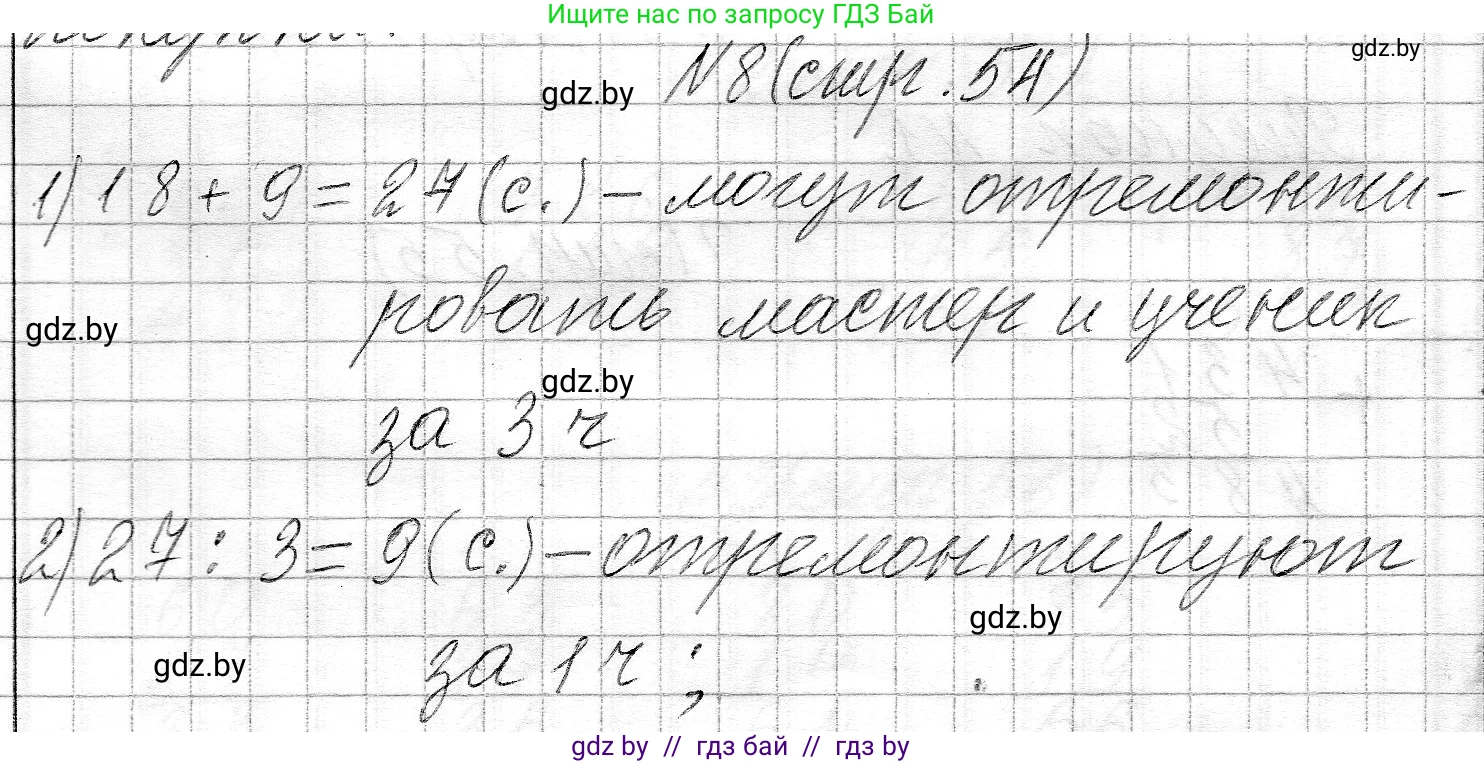 Ищите нас по запросу ГДЗ Бай
gdz.by
N 8 (стр. 54)
gdz.by
1) 18 + 9 = 27 (с.) – могут отремонти-
ровать мастер и ученик
gdz.by
gdz.by
за 3 ч
2) 27 : 3 = 9 (с.) – отремонтируют
gdz.by
за 1 ч ;
gdz.by
gdz by // гдз бай // гдз by